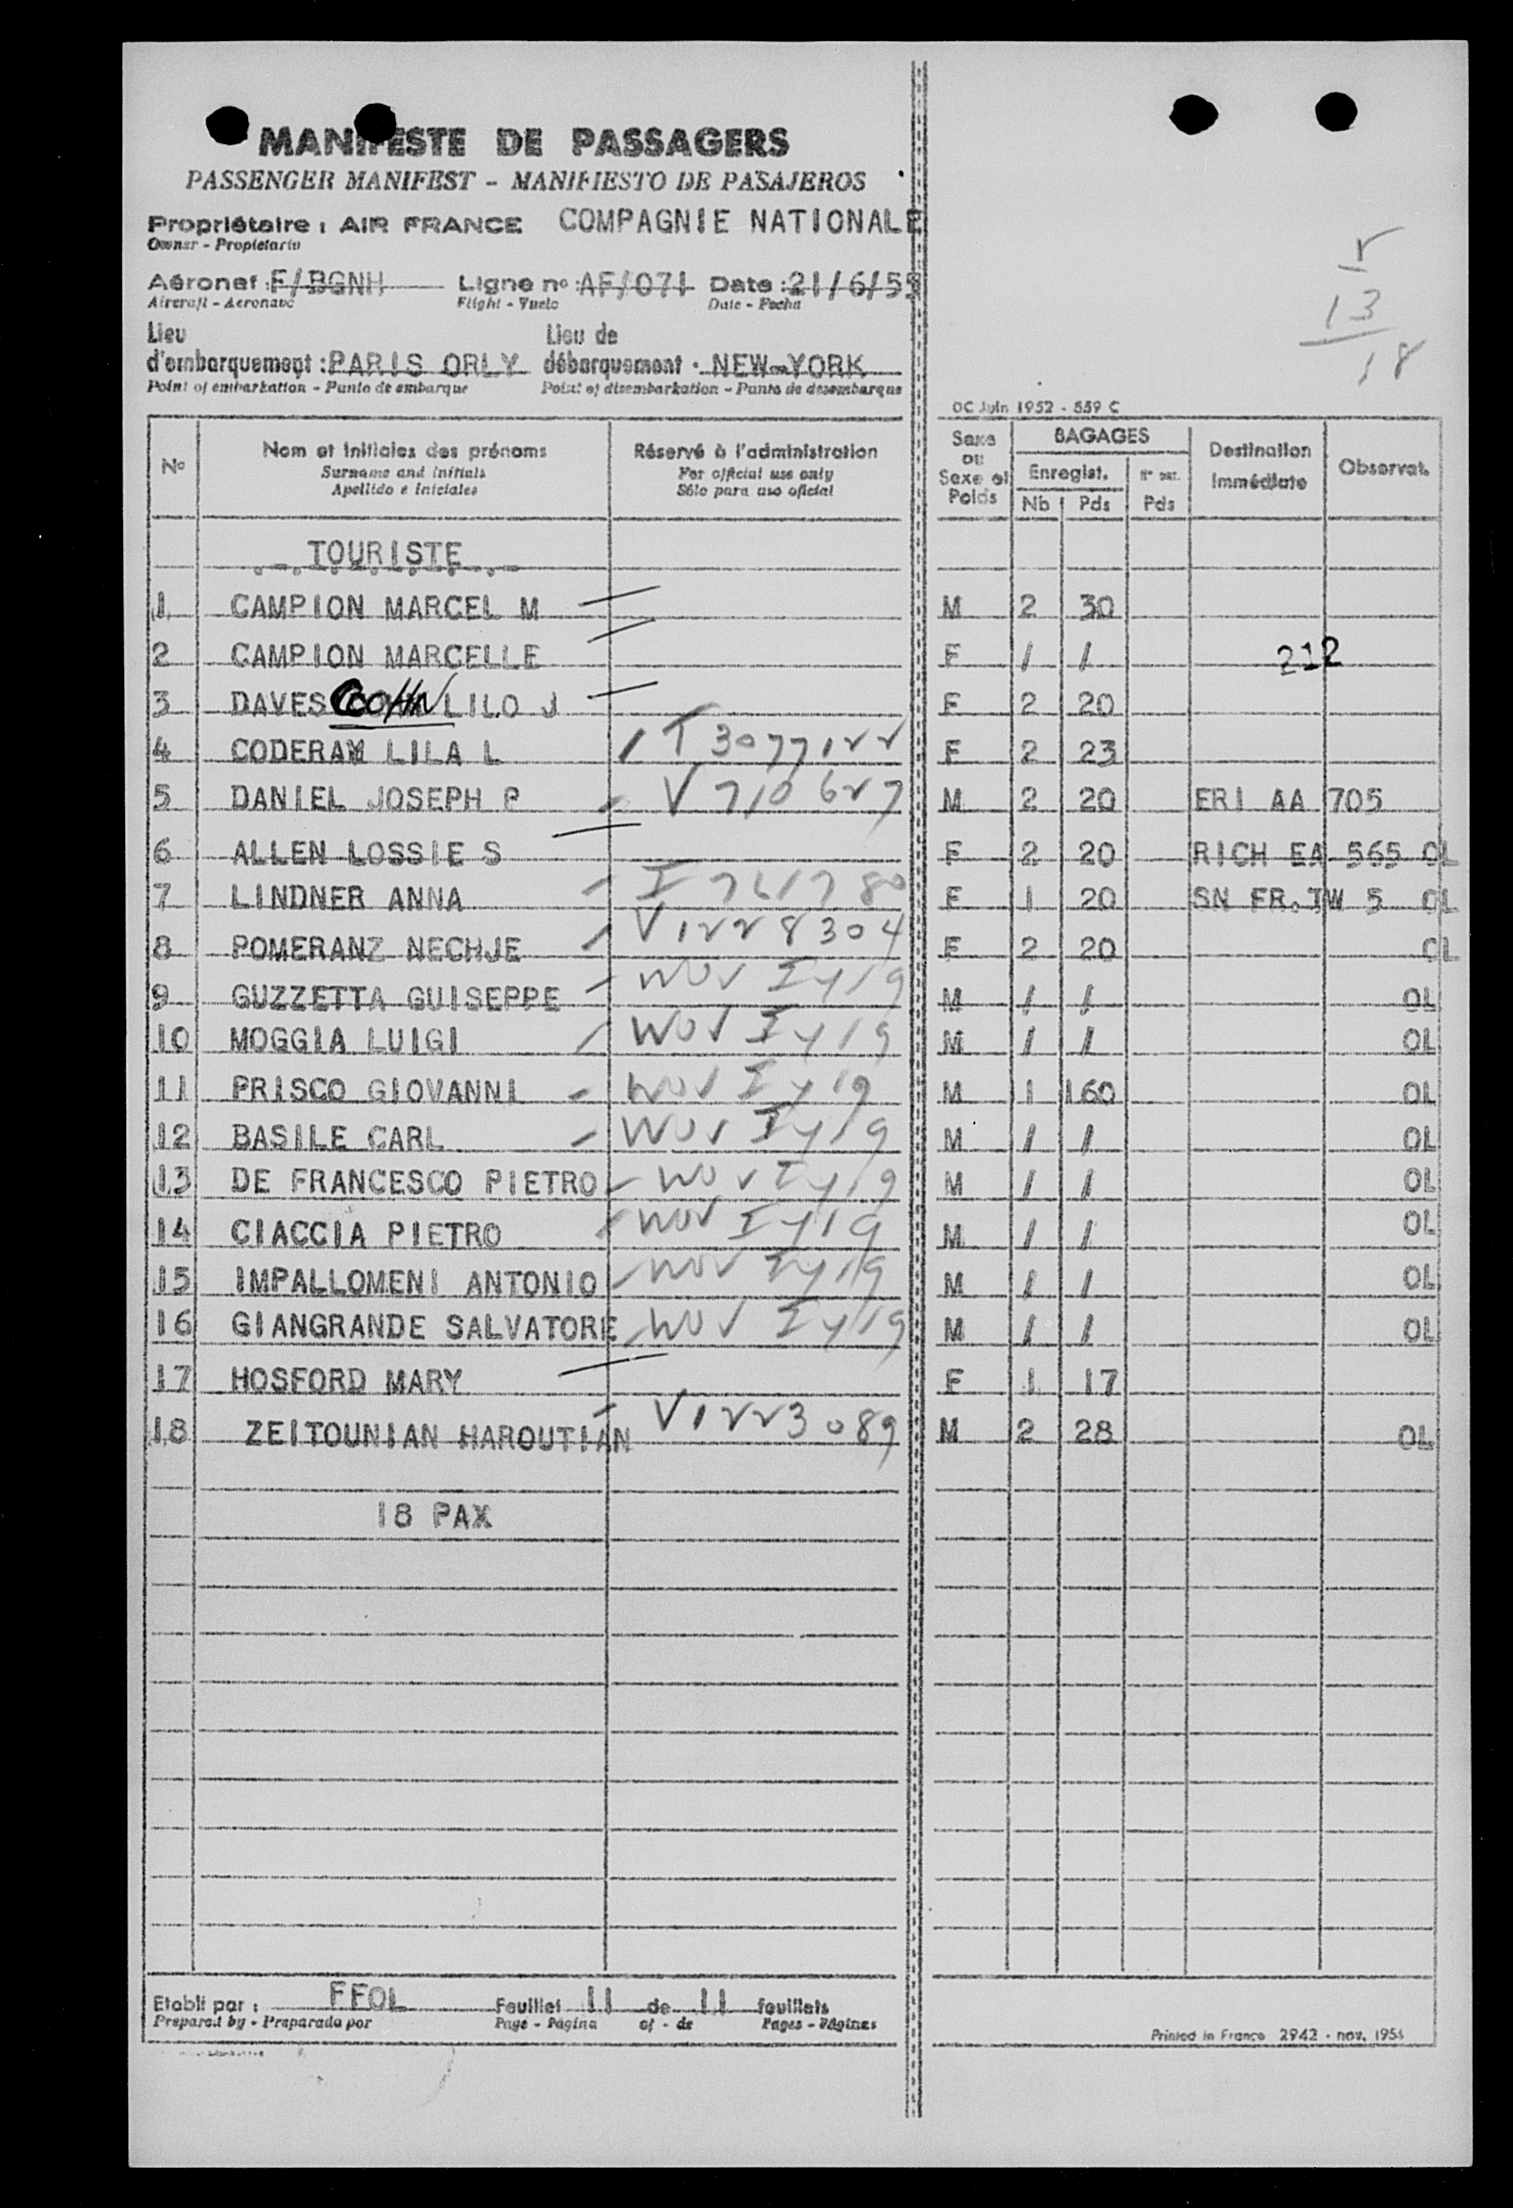 MANIFESTE DE PASSAGERS
PASSENGER MANIFEST - MANIFIESTO DE PASAJEROS
Propriétaire : AIR FRANCE COMPAGNIE NATIONALE
Owner - Propietario
Aéronef : F/BGNH Ligne no : AF/071 Date : 21/6/55
Aircraft - Aeronave Flight - Vuelo Date - Fecha
Lieu Lieu de
d'embarquement : PARIS ORLY débarquement : NEW-YORK
Point of embarkation - Punto de embarque Point of disembarkation - Punto de desembarque
13
18
OC Juin 1952 - 559 C
No Nom et initiales des prénoms Réservé à l'administration Sexe ou Sexe et Poids BAGAGES Destination Immédiate Observat.
Surname and initials For official use only Enregist.
Apellido e iniciales Sólo para uso oficial Nb Pds Pds
TOURISTE
1 CAMPION MARCEL M M 2 30
2 CAMPION MARCELLE F / / 212
3 DAVES COHN LILO J F 2 20
4 CODERAY LILA L T 3077122 F 2 23
5 DANIEL JOSEPH P V 710627 M 2 20 ERI AA 705
6 ALLEN LOSSIE S F 2 20 RICH EA 565 OL
7 LINDNER ANNA I 761780 F 1 20 SN FR. TW 5 OL
8 POMERANZ NECHJE V1228304 F 2 20 OL
9 GUZZETTA GUISEPPE M / / OL
10 MOGGIA LUIGI M / / OL
11 PRISCO GIOVANNI M 1 160 OL
12 BASILE CARL M / / OL
13 DE FRANCESCO PIETRO M / / OL
14 CIACCIA PIETRO M / / OL
15 IMPALLOMENI ANTONIO M / / OL
16 GIANGRANDE SALVATORE M / / OL
17 HOSFORD MARY F 1 17
18 ZEITOUNIAN HAROUTIAN V1223089 M 2 28 OL
18 PAX
Etabli par : FFOL Feuillet 11 de 11 feuillets
Prepared by - Preparado por Page - Página of - de Pages - Páginas
Printed in France 2942 - nov. 1954